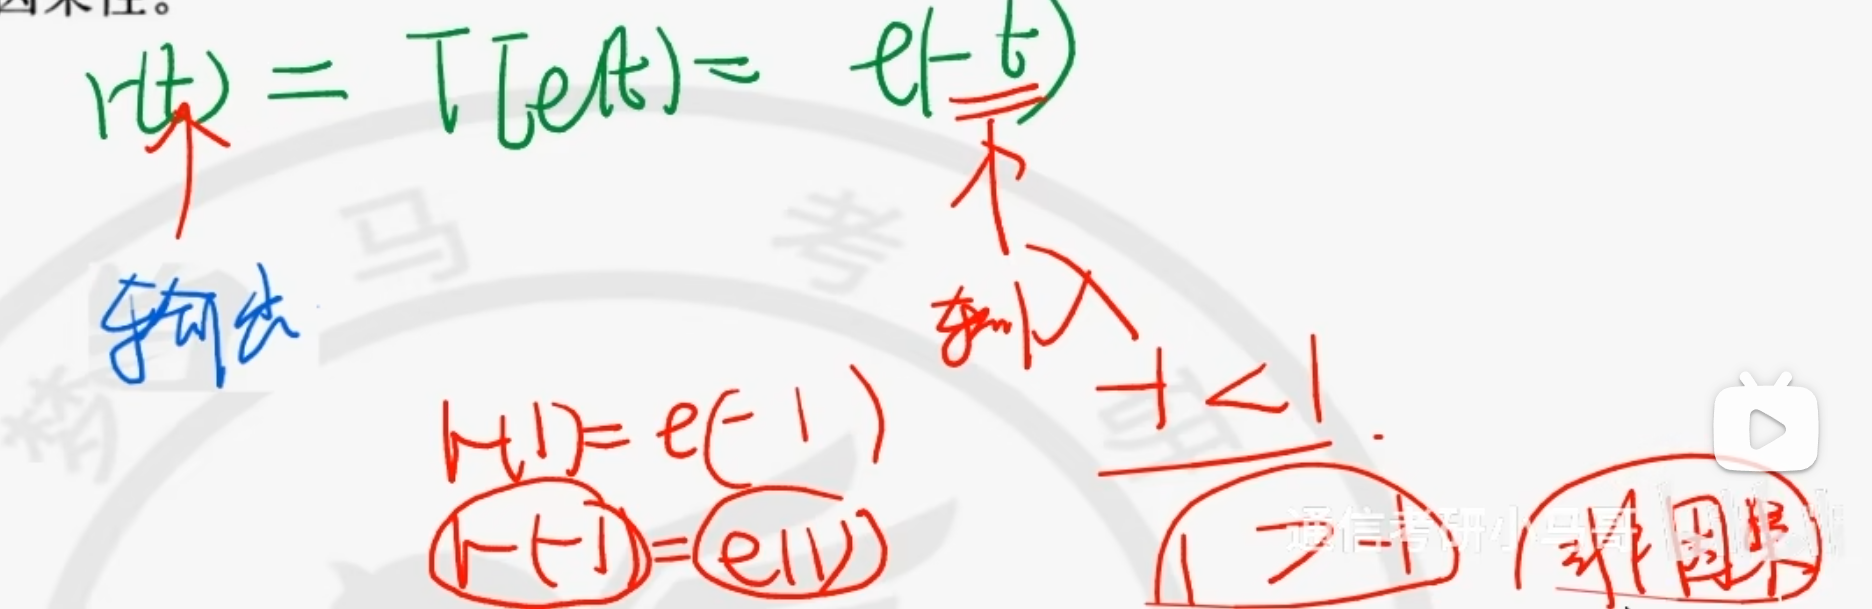 因果性。
r(t) = T[e(t)] = e(-t)
马 考
输出
输入
梦 研
-1 < 1
r(1) = e(-1)
r(-1) = e(1)
1 > -1
非因果
通信考研小马哥